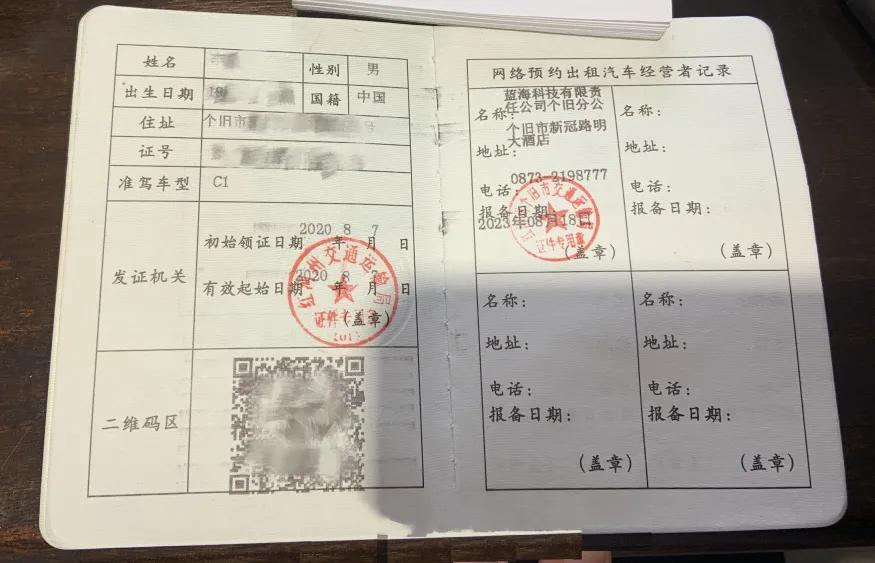 姓名
性别 男
出生日期
国籍 中国
住址 个旧市
证号
准驾车型 C1
发证机关
初始领证日期 2020年8月7日
有效起始日期 2020年8月7日
(盖章)
红河州交通运输局
证件专用章
二维码区
网络预约出租汽车经营者记录
名称: 蓝海科技有限责
任公司个旧分公
地址: 个旧市新冠路明
大酒店
电话: 0873-2198777
报备日期:
2023年08月18日
(盖章)
个旧市交通运输局
证件专用章
名称:
地址:
电话:
报备日期:
(盖章)
名称:
地址:
电话:
报备日期:
(盖章)
名称:
地址:
电话:
报备日期:
(盖章)